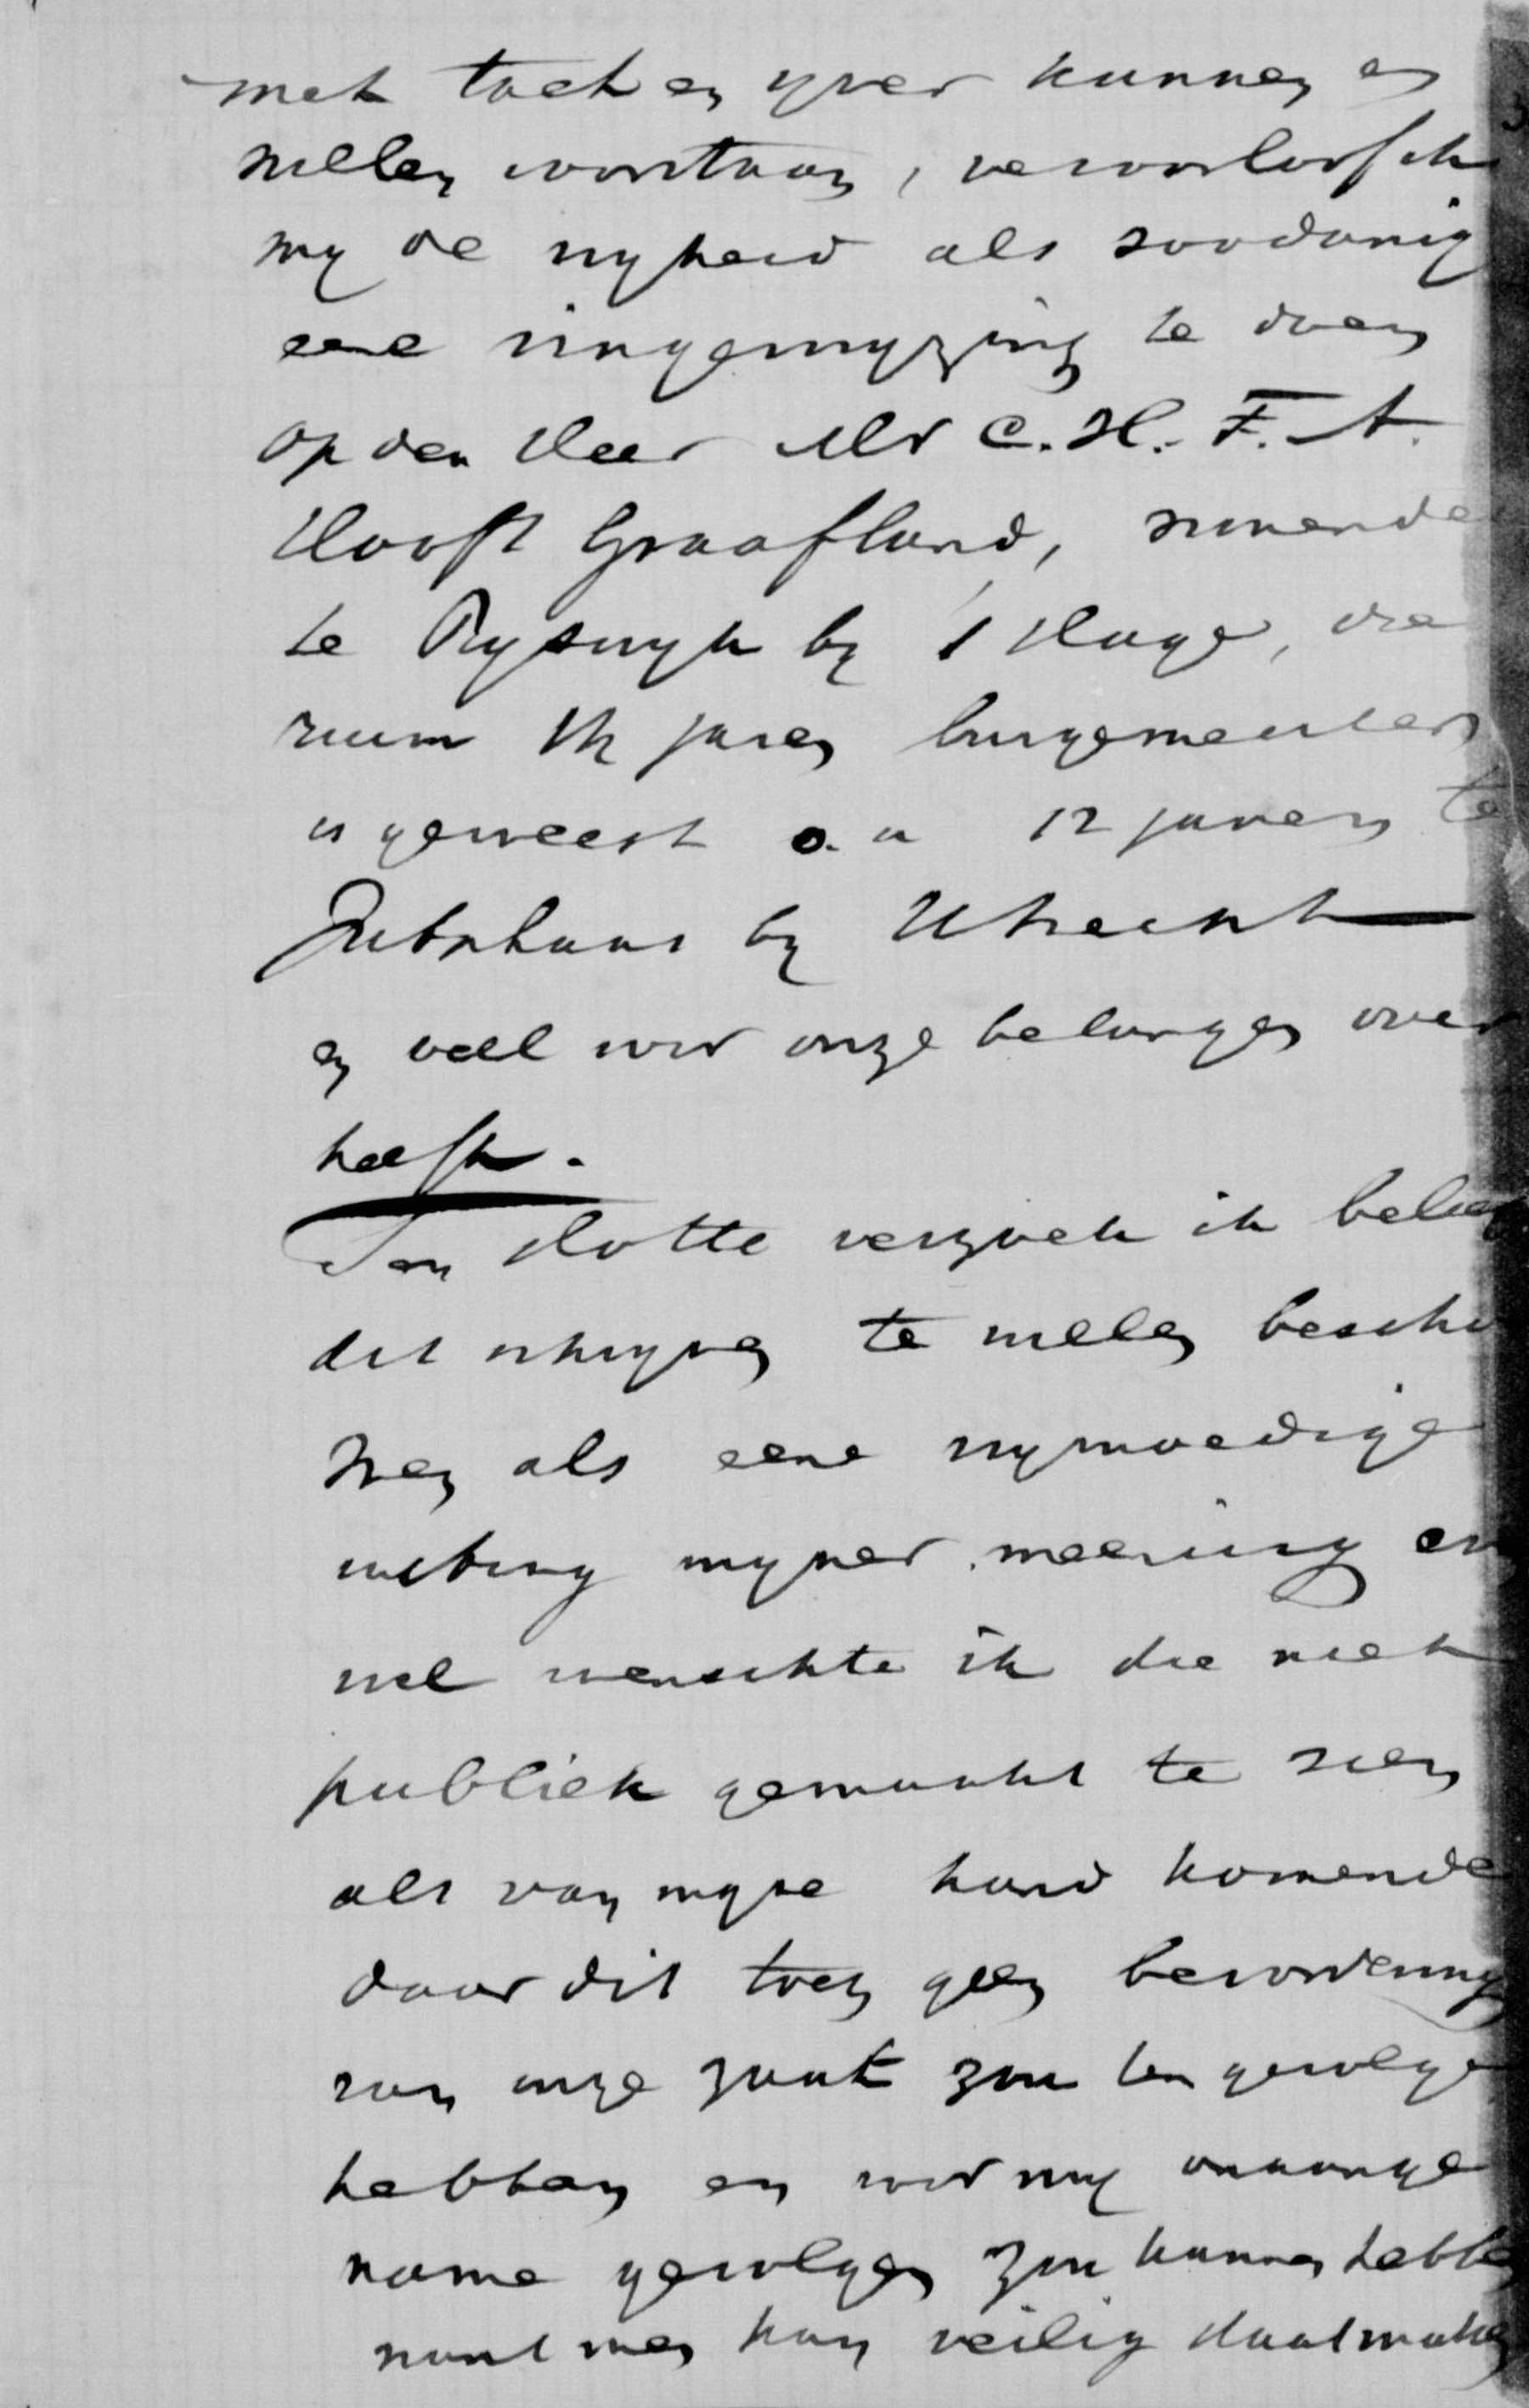 met tact en yver kunnen en
willen voorstaan, veroorloof ik
my de vryheid als zoodanig
eene vingerwyzing te doen
op den Heer Mr C. H. F. A.
Hooft Graafland, wonende
te Ryswyk by 's Hage, die
ruim jaren burgemeester
is geweest o. a 12 jaren te
Jutphaas by Utrecht
en veel voor onze belangen over
heeft.
Ten slotte verzoek ik beleefd
dit schryven te willen beschou
wen als eene vrymoedige
uiting myner meening en
wel wenschte ik die niet
publiek gemaakt te zien
als van myne hand komende
daar dit toch geen bevordering
van onze zaak zou ten gevolge
hebben en voor my onaange
name gevolgen zou kunnen hebben
want men kan veilig staatmaken